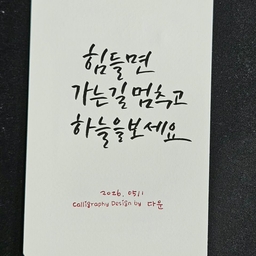 힘들면
가는길 멈추고
하늘을 보세요
2026. 0511
Calligraphy Design by 다운